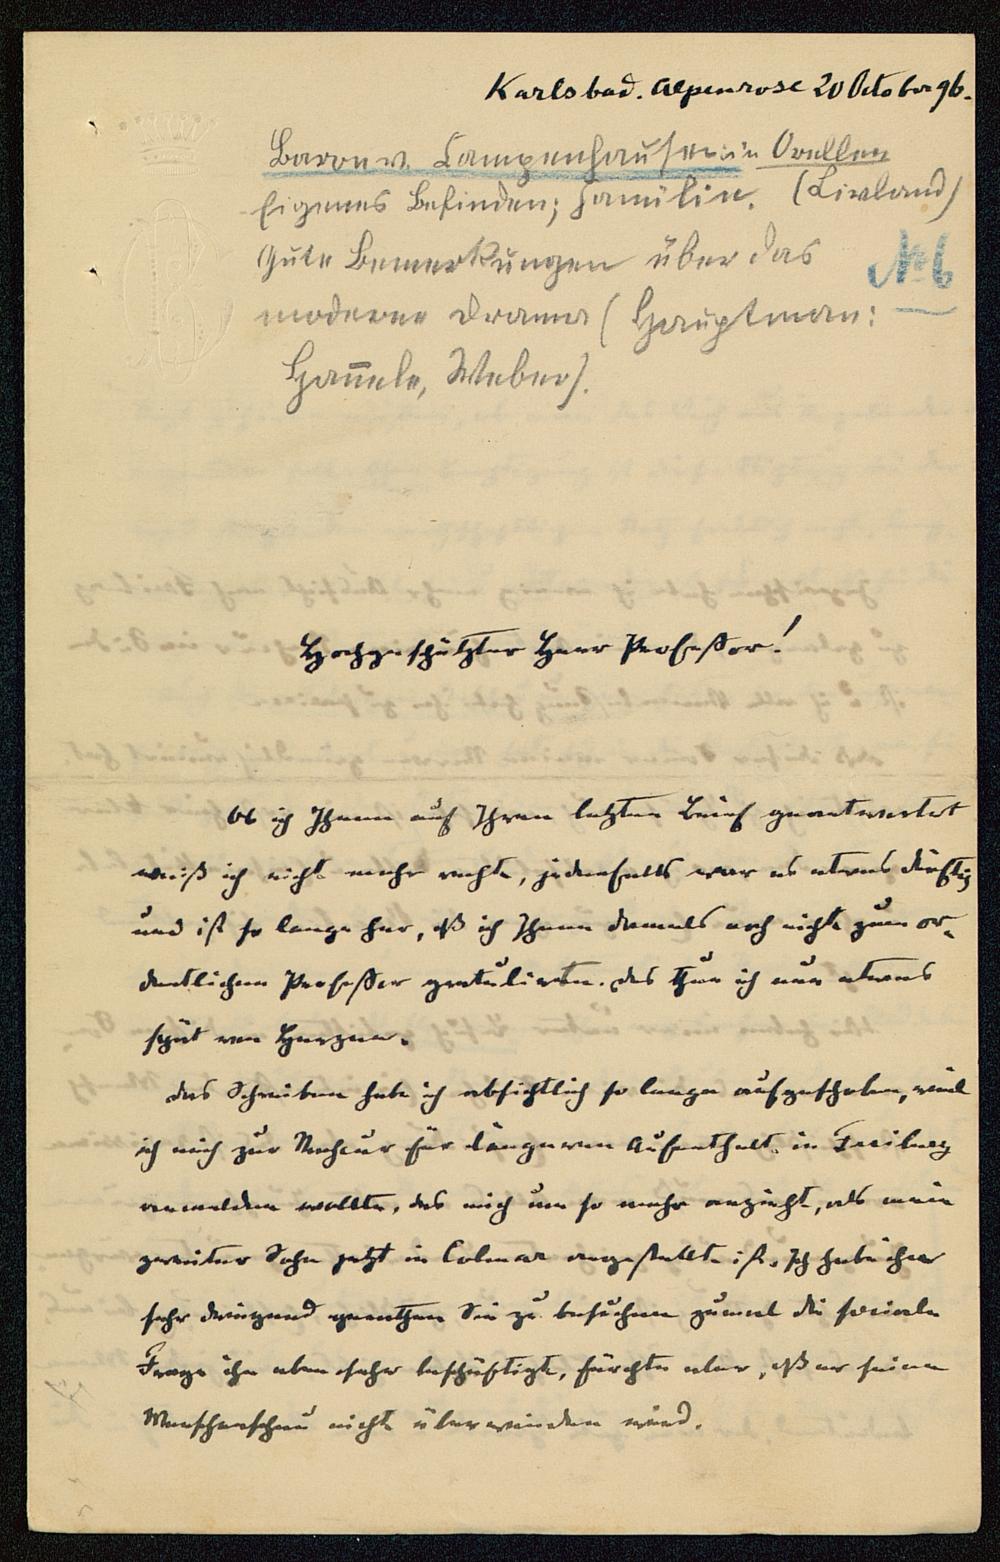 Karlsbad. Alpenrose 20 October 96.
Baron v. Campenhausen in Orellen
Eigenes Befinden; Familie. (Livland)
Gute Bemerkungen über das
No 6
moderne Drama (Hauptman:
Hannele, Weber).
Hochgeschätzter Herr Professor!
Ob ich Ihnen auf Ihren letzten Brief geantwortet
weiß ich nicht mehr recht, jedenfalls war es etwas dürftig
und ist so lange her, dß ich Ihnen damals noch nicht zum or-
dentlichen Professor gratulierte. Das thue ich nun etwas
spät von Herzen.
Das Schreiben habe ich absichtlich so lange aufgeschoben, weil
ich mich zur Nachcur für längeren Aufenthalt in Freiburg
anmelden wollte, das mich um so mehr anzieht, als mein
zweiter Sohn jetzt in Colmar angestellt ist. Ich habe ihm
sehr dringend gerathen Sie zu besuchen zumal die sociale
Frage ihn eben sehr beschäftigt, fürchte aber, dß er seine
Menschenscheu nicht überwinden wird.